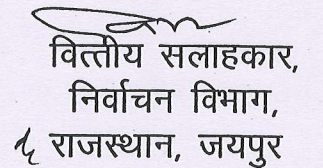 वित्तीय सलाहकार,
निर्वाचन विभाग,
राजस्थान, जयपुर